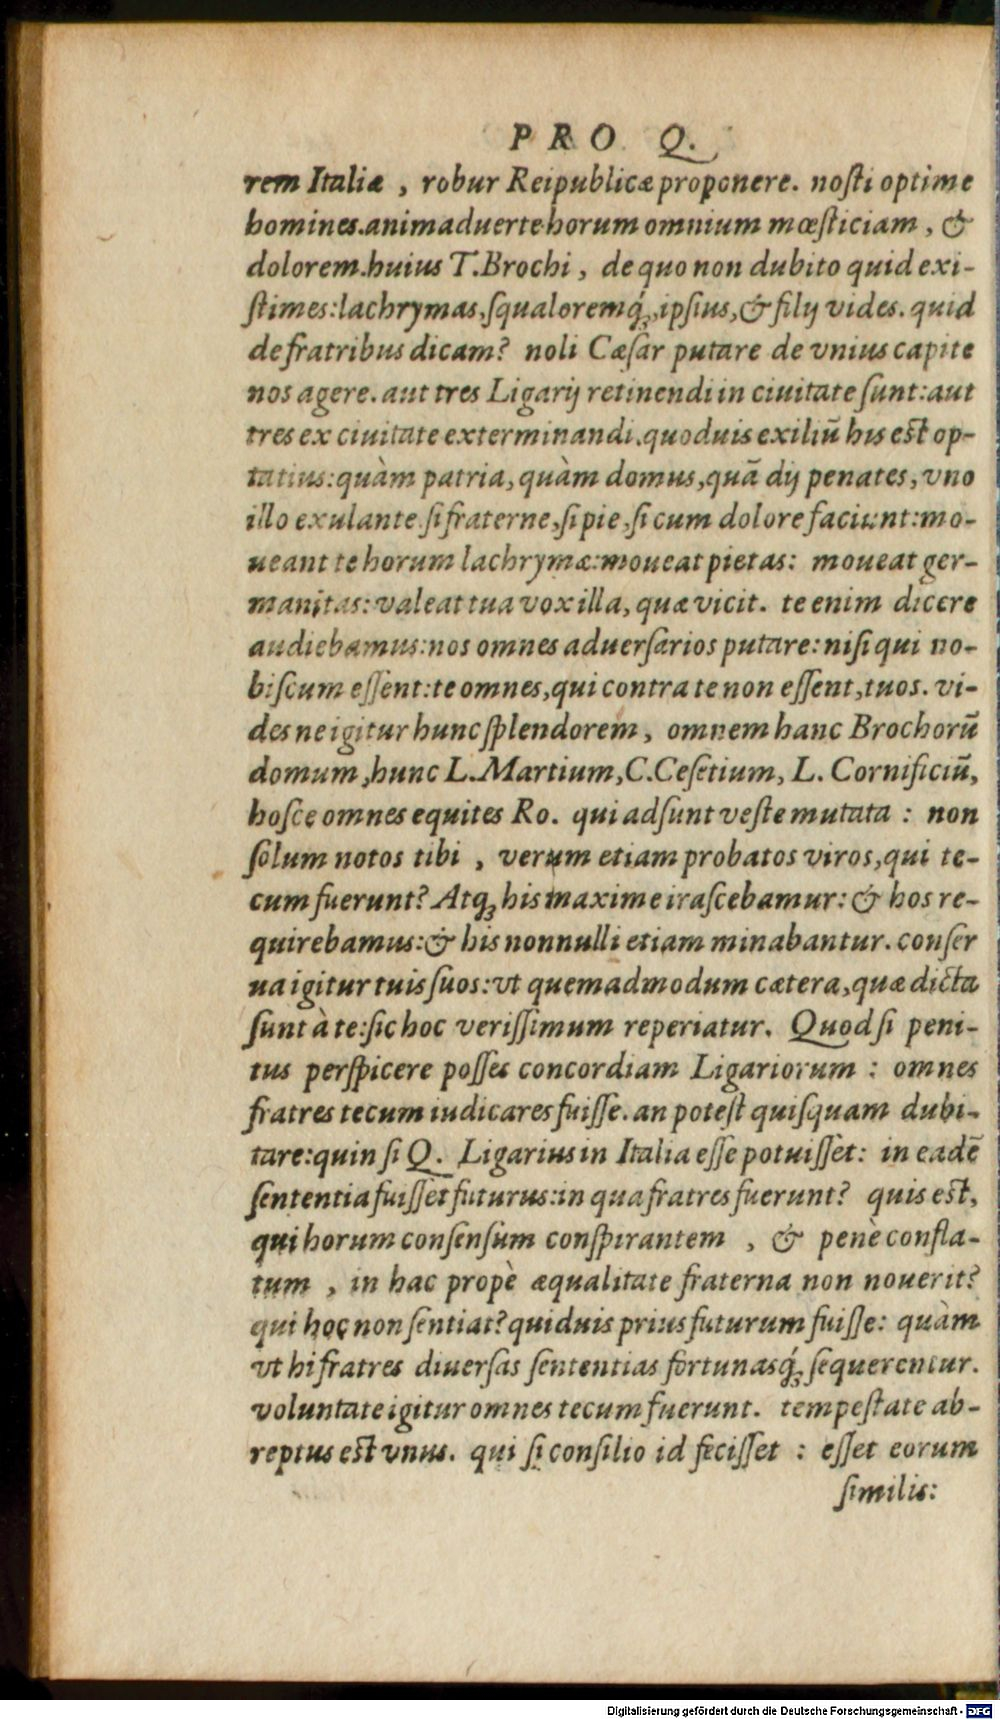 PRO Q.
rem Italiæ, robur Reipublicæ proponere. noſti optime
homines. animaduerte horum omnium mœſticiam, &
dolorem. huius T. Brochi, de quo non dubito quid exi-
ſtimes: lachrymas, ſqualoremq́ꝫ, ipſius, & filij vides. quid
de fratribus dicam? noli Cæſar putare de vnius capite
nos agere. aut tres Ligarij retinendi in ciuitate ſunt: aut
tres ex ciuitate exterminandi. quoduis exiliũ his eſt op-
tatius: quàm patria, quàm domus, quã dij penates, vno
illo exulante. ſi fraterne, ſi pie, ſi cum dolore faciunt: mo-
ueant te horum lachrymæ: moueat pietas: moueat ger-
manitas: valeat tua vox illa, quæ vicit. te enim dicere
audiebamus: nos omnes aduerſarios putare: niſi qui no-
biſcum eſſent: te omnes, qui contra te non eſſent, tuos. vi-
des ne igitur hunc ſplendorem, omnem hanc Brochorũ
domum, hunc L. Martium, C. Ceſetium, L. Cornificiũ,
hoſce omnes equites Ro. qui adſunt veſte mutata: non
ſolum notos tibi, verum etiam probatos viros, qui te-
cum fuerunt? Atqꝫ his maxime iraſcebamur: & hos re-
quirebamus: & his nonnulli etiam minabantur. conſer
ua igitur tuis ſuos: vt quemadmodum cætera, quæ dicta
ſunt à te: ſic hoc veriſſimum reperiatur. Quod ſi peni-
tus perſpicere poſſes concordiam Ligariorum: omnes
fratres tecum iudicares fuiſſe. an poteſt quiſquam dubi-
tare: quin ſi Q. Ligarius in Italia eſſe potuiſſet: in eadẽ
ſententia fuiſſet futurus: in qua fratres fuerunt? quis eſt,
qui horum conſenſum conſpirantem, & penè confla-
tum, in hac propè æqualitate fraterna non nouerit?
qui hoc non ſentiat? quiduis prius futurum fuiſſe: quàm
vt hi fratres diuerſas ſententias fortunasq́ꝫ ſequerentur.
voluntate igitur omnes tecum fuerunt. tempeſtate ab-
reptus eſt vnus. qui ſi conſilio id feciſſet: eſſet eorum
ſimilis:
Digitalisierung gefördert durch die Deutsche Forschungsgemeinschaft - DFG